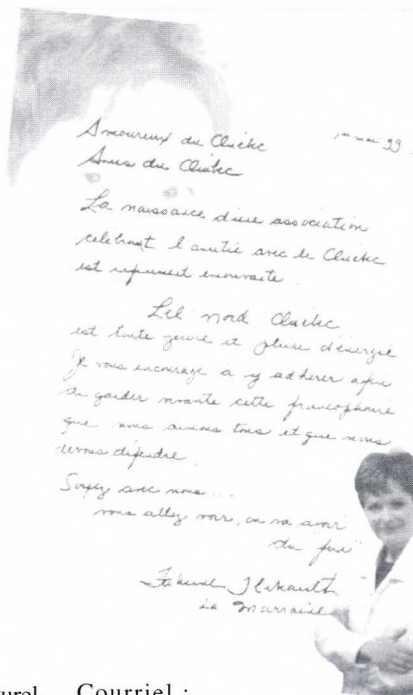 1er mai 99
Amoureux du Québec
Amis du Québec
La naissance d'une association
célébrant l'amitié avec le Québec
est émouvante.
Lil nord Québec
est toute jeune et pleine d'énergie
Je vous encourage à y adhérer afin
de garder vivante cette francophonie
que nous aimons tous et que nous
devons défendre.
Soyez avec nous...
vous allez voir, on va avoir
du fun
Fabienne Thibeault
la Marraine
urel Courriel :